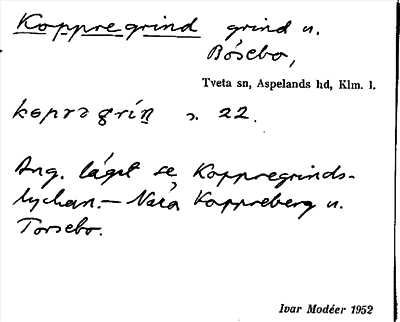 Koppregrind grind u.
Bösebo,
Tveta sn, Aspelands hd, Klm. l.
koprəgrin s. 22.
Ang. läget se Koppregrinds-
lyckan. – Nära Koppreberg u.
Torsebo.
Ivar Modéer 1952